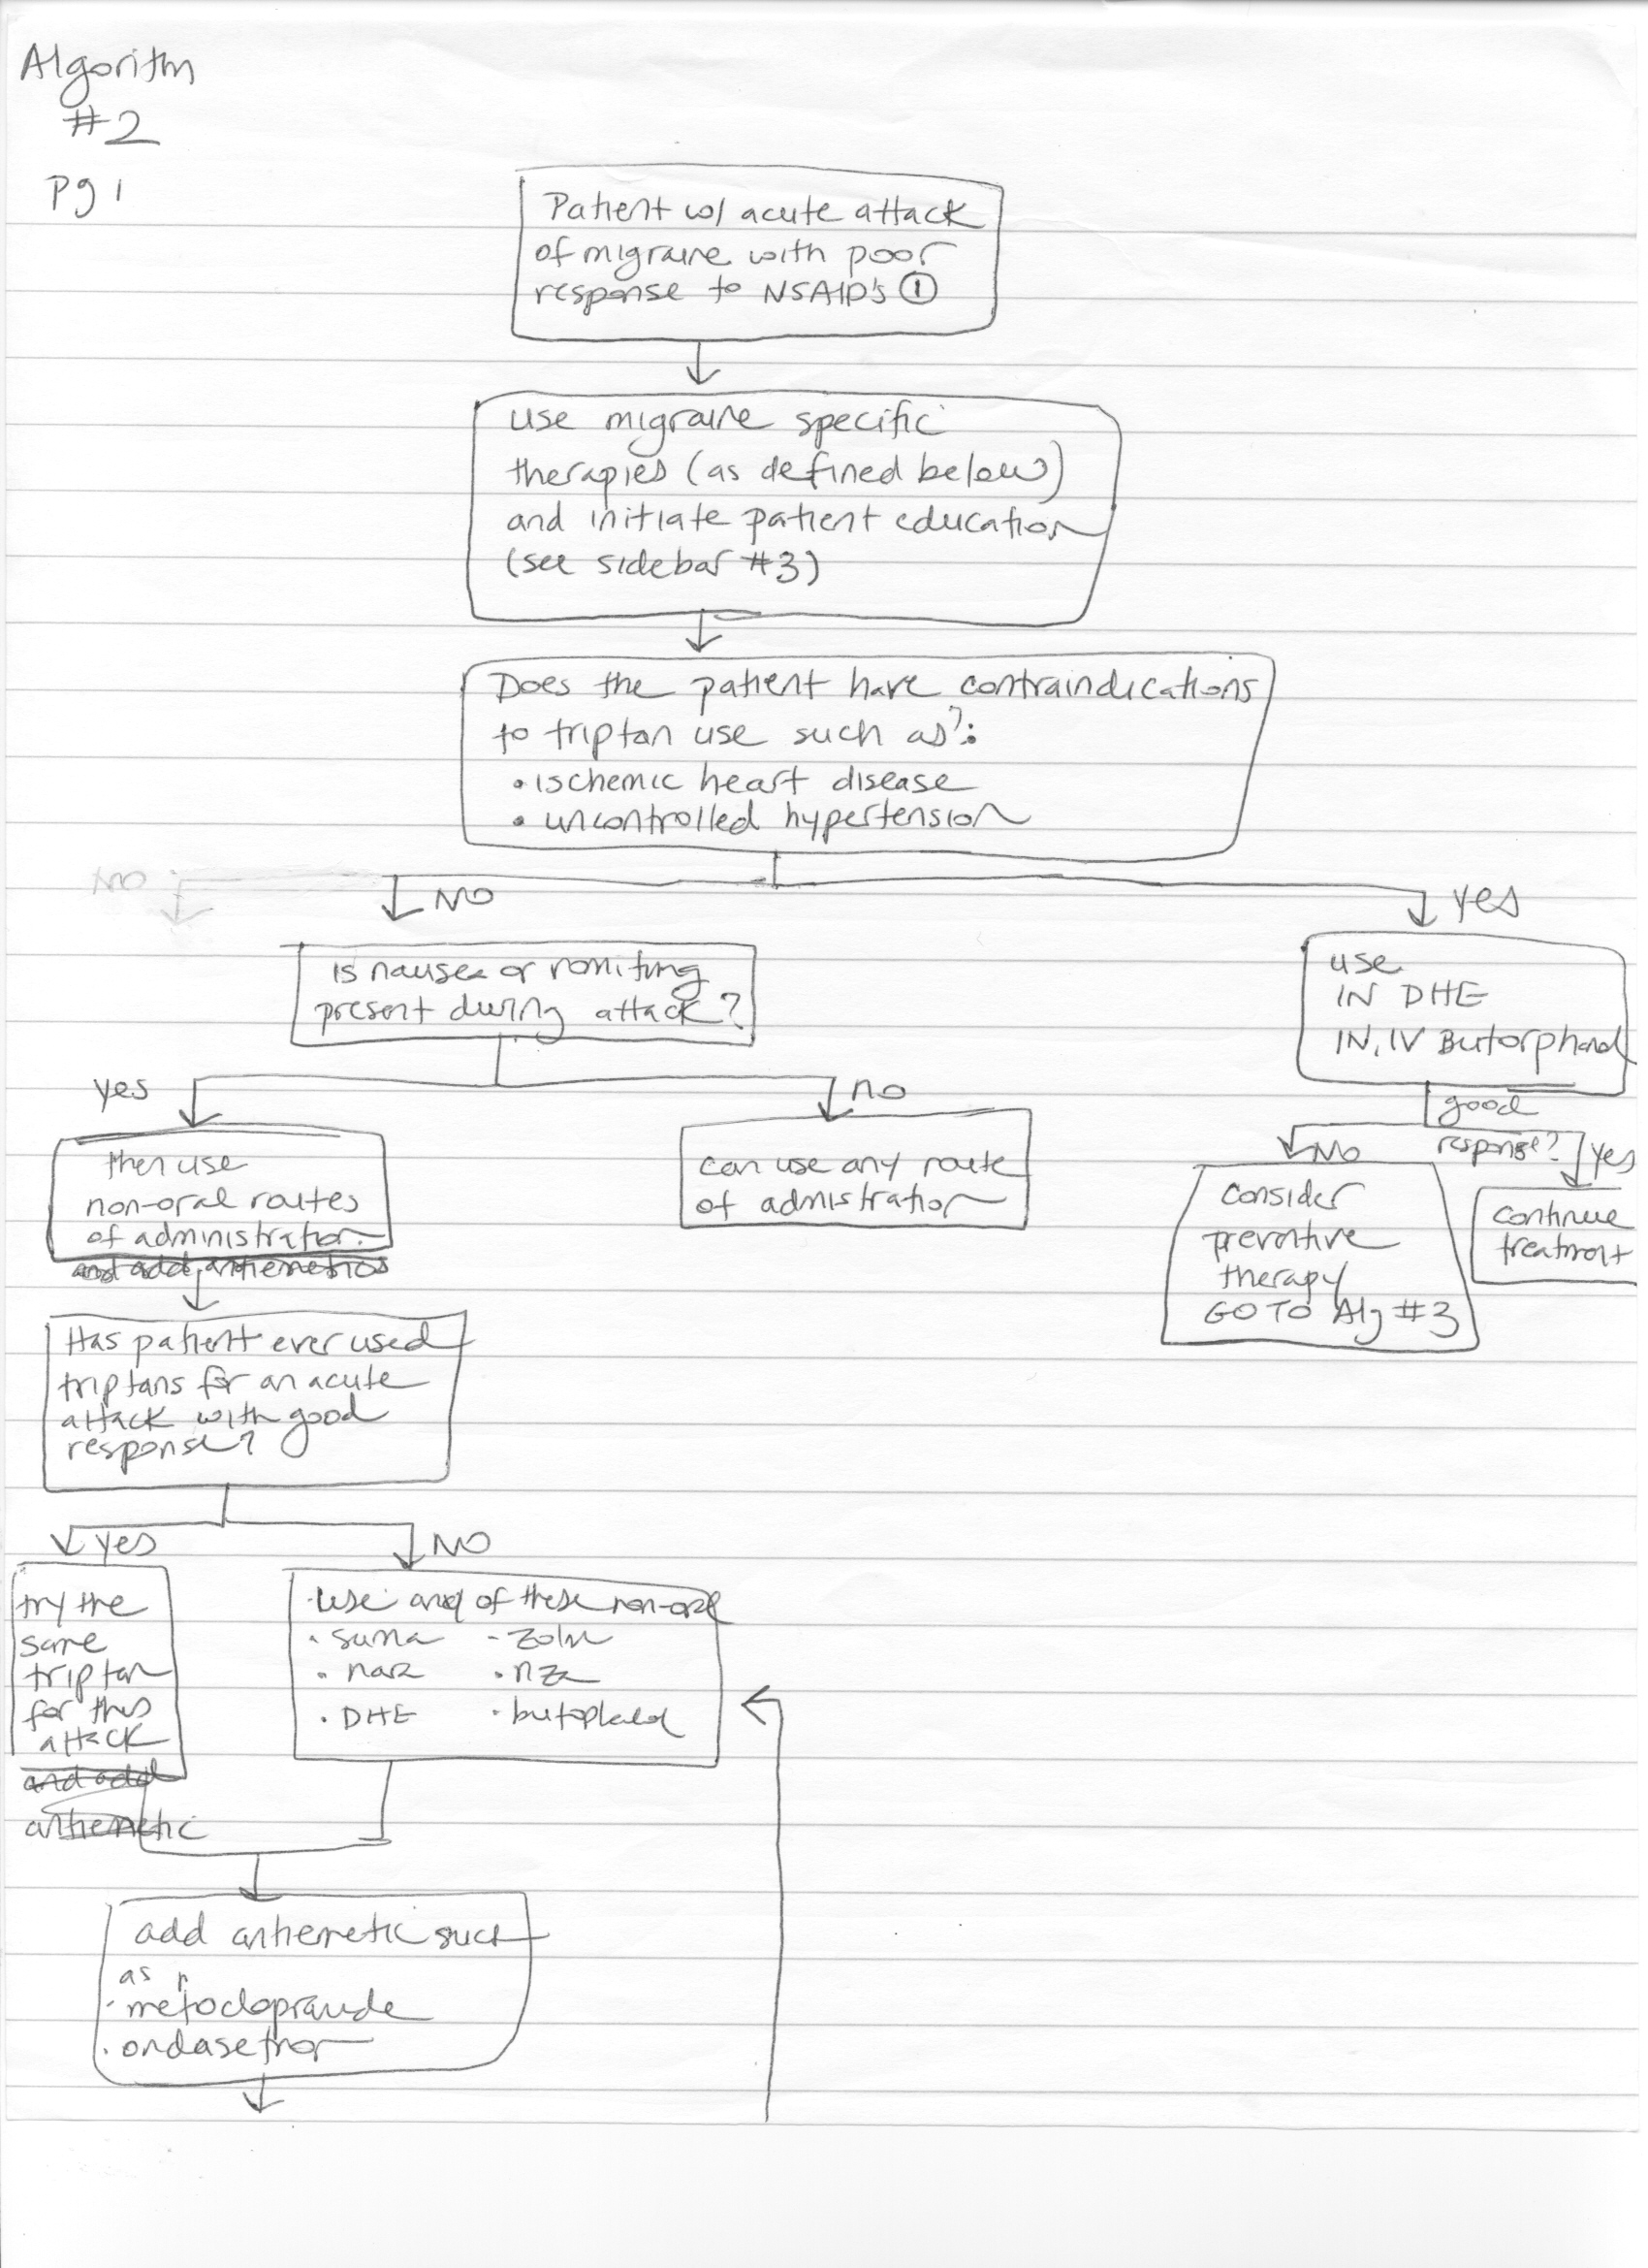 Algorithm
#2
Pg 1
Patient w/ acute attack
of migraine with poor
response to NSAID's ①
use migraine specific
therapies (as defined below)
and initiate patient education
(see sidebar #3)
Does the patient have contraindications
to triptan use such as?:
• ischemic heart disease
• uncontrolled hypertension
NO
NO
yes
is nausea or vomiting
present during attack?
use
IN DHE
IN, IV Butorphanol
yes
no
good
response?
NO
yes
then use
non-oral routes
of administration.
and add antiemetics
can use any route
of administration
consider
preventive
therapy
GO TO Alg #3
continue
treatment
Has patient ever used
triptans for an acute
attack with good
response?
yes
NO
try the
same
triptan
for this
attack
and add
antiemetic
• Use any of these non-oral
• suma - zolm
• nara
• DHE
add antiemetic such
as
• metoclopramide
• ondasetron